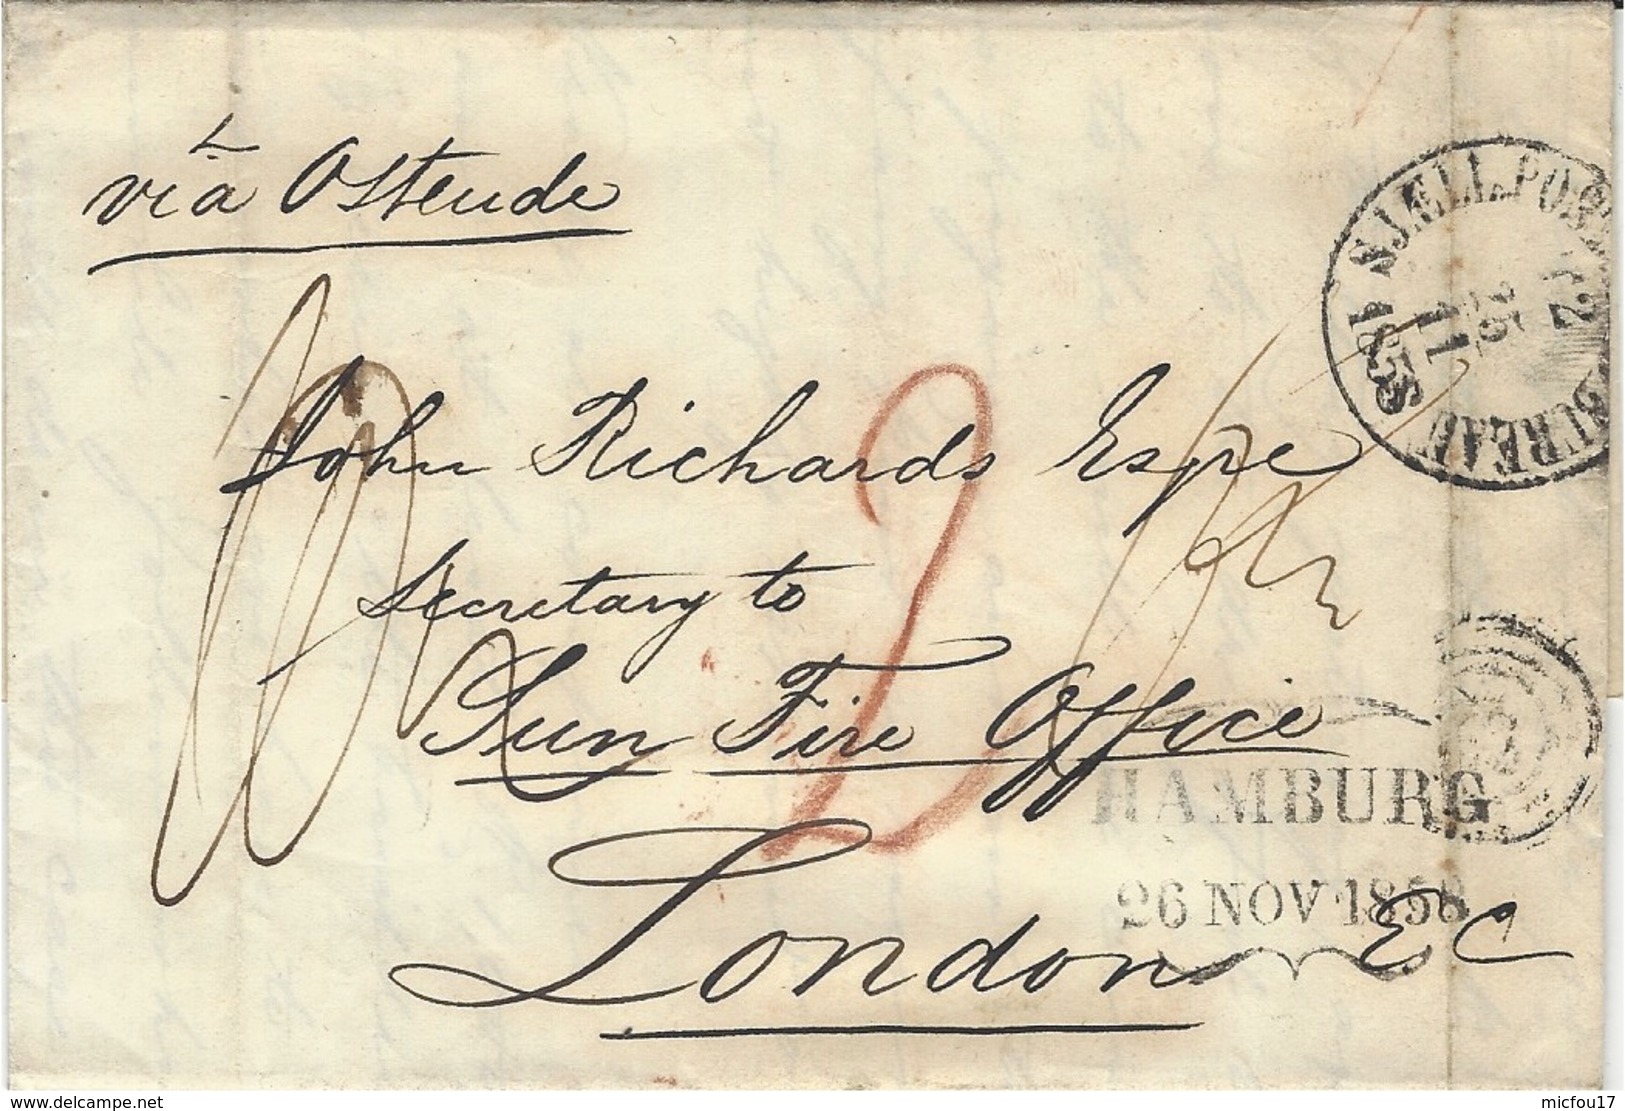 via Ostende
SJÆLL. POST
BUREAU
1858
11
25
2
John Richards Esqre
Secretary to
Sun Fire Office
London EC
2
HAMBURG
26 NOV 1858
www.delcampe.net
micfou17